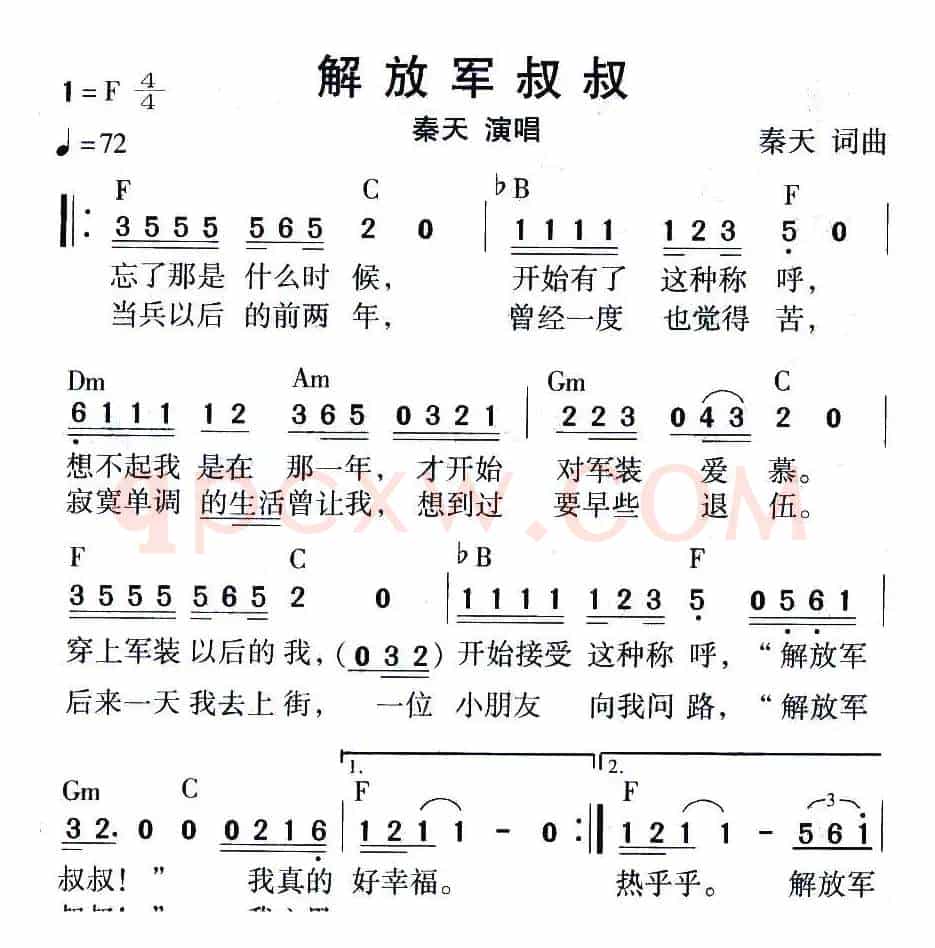 解放军叔叔
1=F 4/4
秦天 演唱
♩=72
秦天 词曲
F C ♭B F
3555 565 2 0 1111 123 5 0
忘了那是 什么时 候， 开始有了 这种称 呼，
当兵以后 的前两 年， 曾经一度 也觉得 苦，
Dm Am Gm C
6111 12 365 0321 223 043 2 0
想不起我 是在 那一年，才开始 对军装 爱 慕。
寂寞单调 的生活曾让我，想到过 要早些 退 伍。
qpcxw.com
F C ♭B F
3555 565 2 0 1111 123 5 0561
穿上军装 以后的 我，(032) 开始接受 这种称 呼，“解放军
后来一天 我去上 街， 一位 小朋友 向我问 路，“解放军
1. 2.
Gm C F F
32. 0 0 0216 121 1 - 0 121 1 - 3 561
叔叔！” 我真的 好幸福。 热乎乎。 解放军
叔叔！”